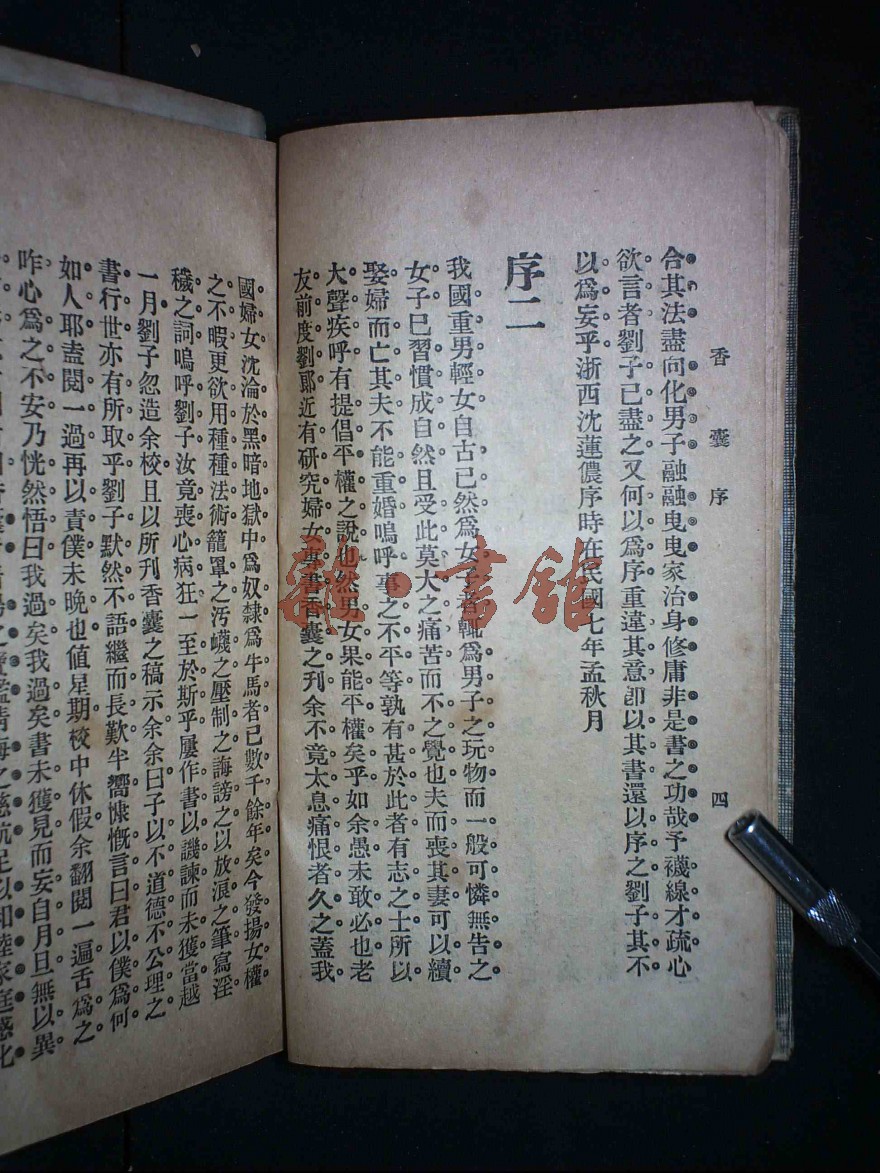 香囊序 四
合其法盡向化男子融融曳曳家治身修庸非是書之功哉予襪線才疏心
欲言者劉子已盡之又何以爲序重違其意卽以其書還以序之劉子其不
以爲妄乎浙西沈蓮儂序時在民國七年孟秋月
序二
我國重男輕女自古已然爲女子者輒爲男子之玩物而一般可憐無告之
女子已習慣成自然且受此莫大之痛苦而不之覺也夫而喪其妻可以續
娶婦而亡其夫不能重婚嗚呼事之不平等孰有甚於此者有志之士所以
大聲疾呼有提倡平權之說也然男女果能平權矣乎如余愚未敢必也老
友前度劉郞近有研究婦女事書香囊之刊余不竟太息痛恨者久之蓋我
國婦女沈淪於黑暗地獄中爲奴隸爲牛馬者已數千餘年矣今發揚女權
之不暇更欲用種種法術籠罩之汚衊之壓制之誨謗之以放浪之筆寫淫
穢之詞嗚呼劉子汝竟喪心病狂一至於斯乎屢作書以譏諫而未獲當越
一月劉子忽造余校且以所刊香囊之稿示余余曰子以不道德不公理之
書行世亦有所取乎劉子默然不語繼而長歎半嚮慷慨言曰君以僕爲何
如人耶盍閱一過再以責僕未晚也値星期校中休假余翻閱一遍舌爲之
咋心爲之不安乃恍然悟曰我過矣我過矣書未獲見而妄自月旦無以異
之慈航足以和睦家庭感化
龍書館